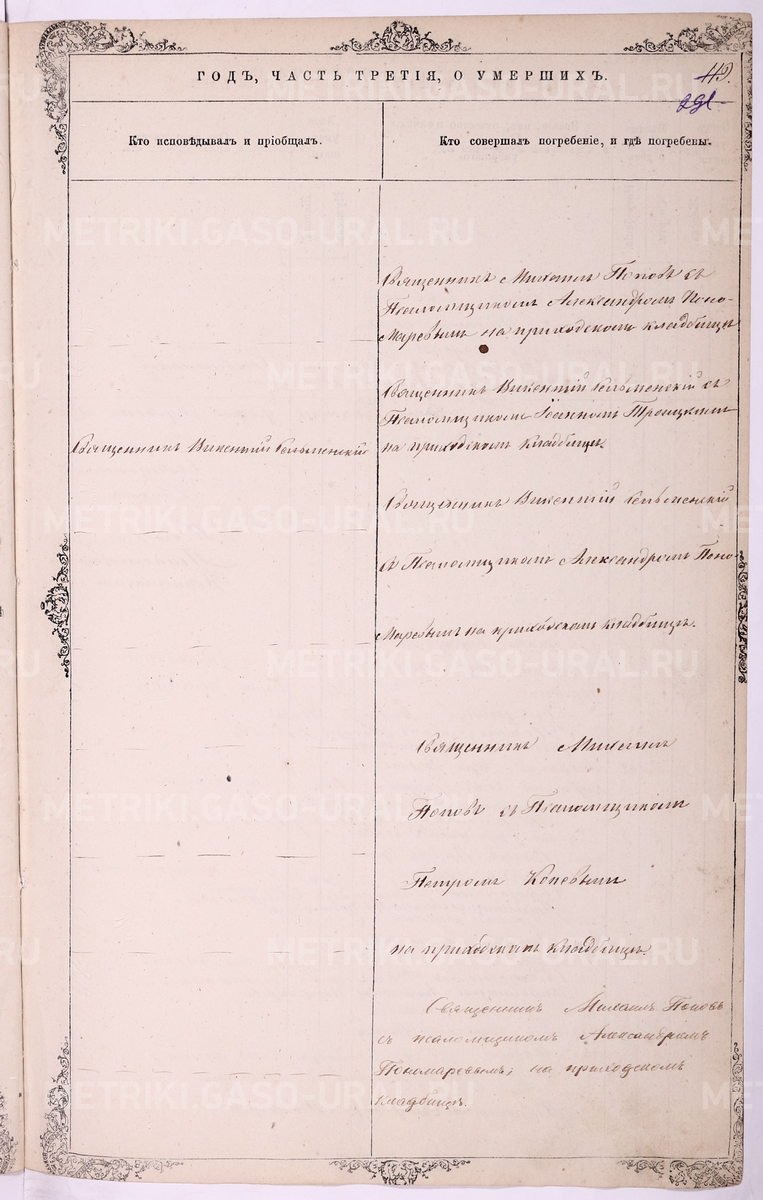 ГОДЪ, ЧАСТЬ ТРЕТІЯ, О УМЕРШИХЪ.
119.
291
Кто исповѣдывалъ и пріобщалъ.
Кто совершалъ погребеніе, и гдѣ погребены.
Священникъ Михаилъ Поповъ съ
Псаломщикомъ Александромъ Поно-
маревымъ на приходскомъ кладбищѣ
Священникъ Викентій Сельменскій съ
Псаломщикомъ Іоанномъ Троицкимъ
на приходскомъ кладбищѣ.
Священникъ Викентій Сельменскій
Священникъ Викентій Сельменскій
съ Псаломщикомъ Александромъ Поно-
маревымъ на приходскомъ кладбищѣ.
Священникъ Михаилъ
Поповъ съ Псаломщикомъ
Петромъ Коневымъ
на приходскомъ кладбищѣ.
Священникъ Михаилъ Поповъ
съ псаломщикомъ Александромъ
Пономаревымъ, на приходскомъ
кладбищѣ.
METRIKI.GASO-URAL.RU